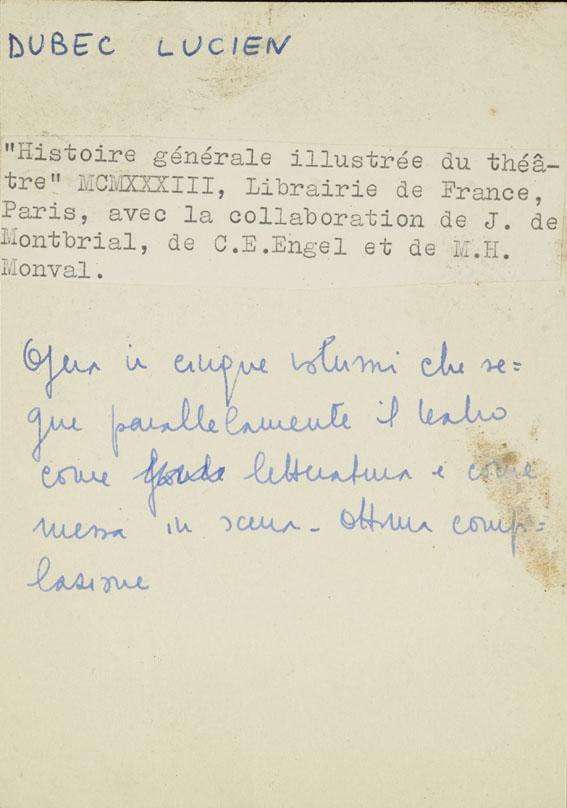 DUBEC LUCIEN
"Histoire générale illustrée du théâ-
tre" MCMXXXIII, Librairie de France,
Paris, avec la collaboration de J. de
Montbrial, de C.E.Engel et de M.H.
Monval.
Opera in cinque volumi che se=
gue parallelamente il teatro
come letteratura e come
messa in scena - Ottima comp=
lazione